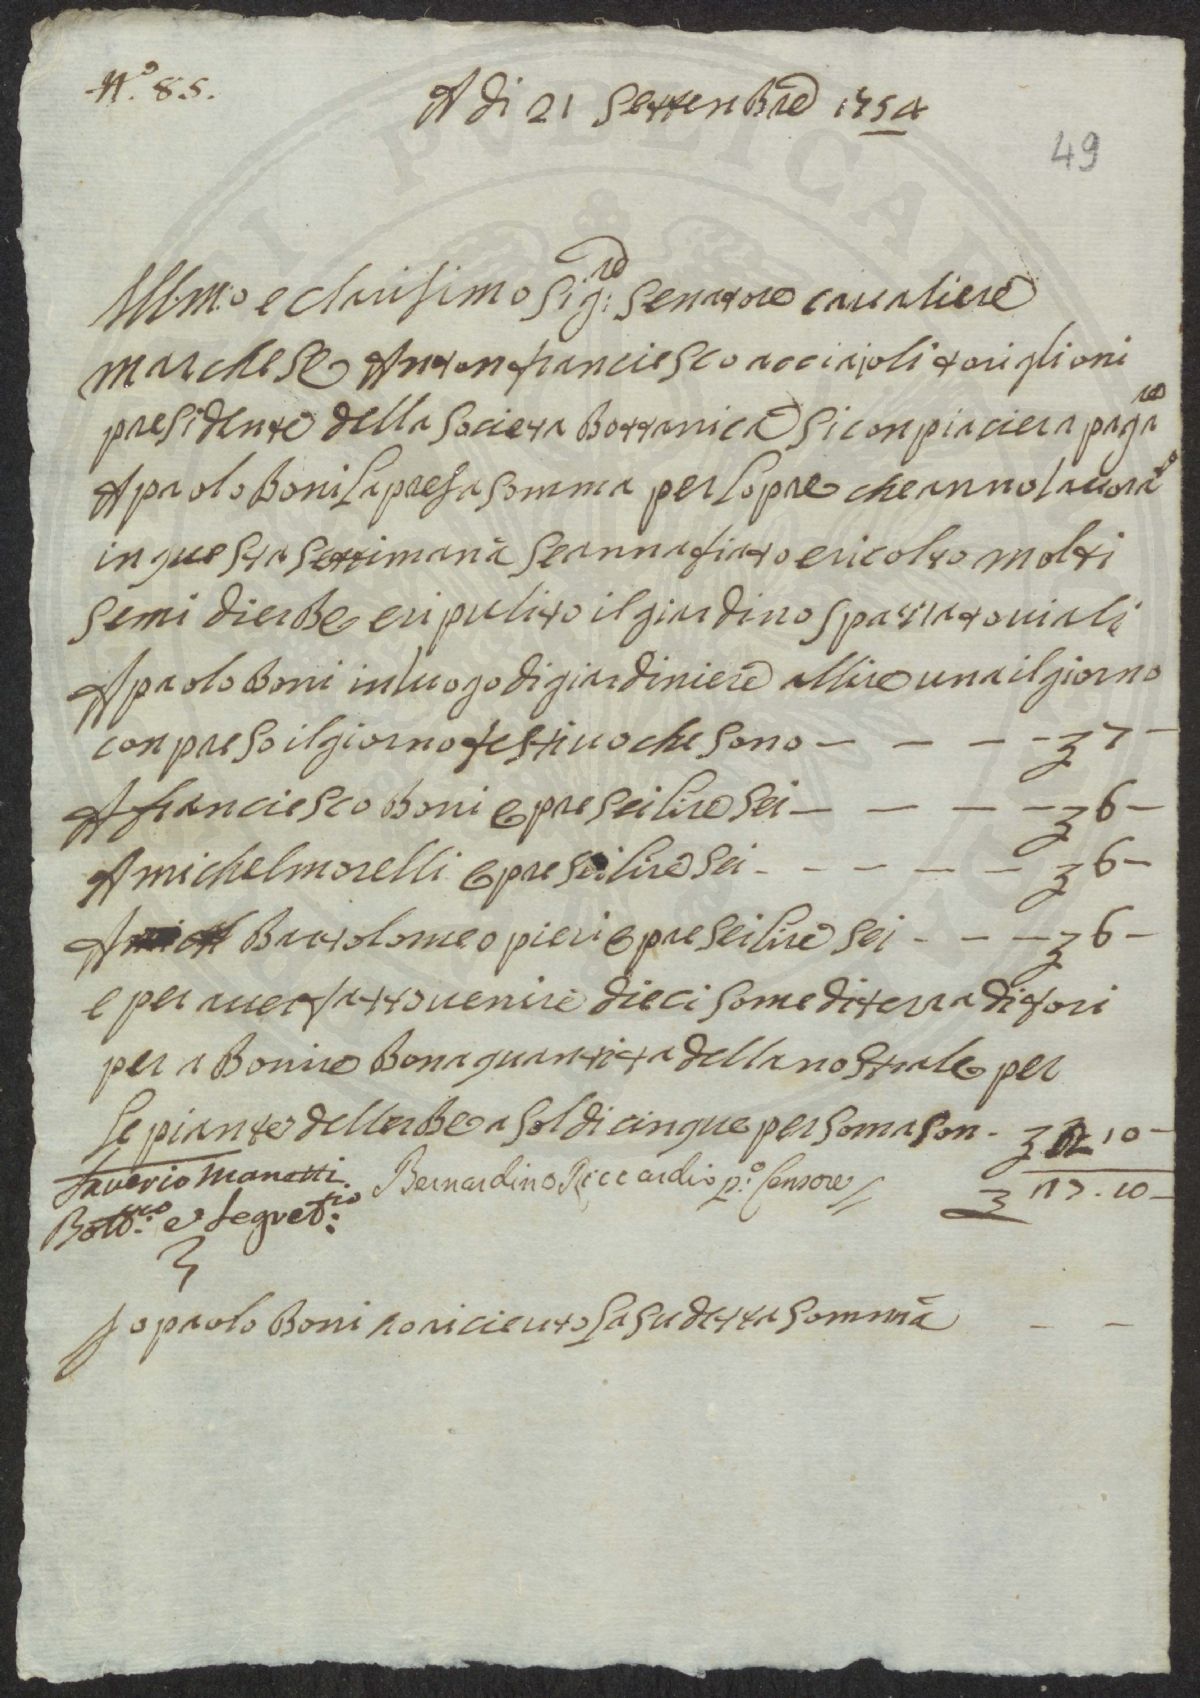 N.° 85.
A di 21 Settenbre 1754
49
Ill:mo e clarisimo Sig:re Senatore caualiere
marchese Antonfranciesco acciajoli toriglioni
presidente della Societa Bottanica Si conpiaciera pagare
A paolo Boni la presa Somma per lopre che anno lauora.to
in questa Settimana Se annafiato e ricolto molti
Semi dierbe e ripulito il giardino Spazzato uiali
A paolo Boni in luogo di giardiniere allire una il giorno
conpreso il giorno festiuo che Sono — — — — ʒ 7 —
A franciesco Boni epre Sei lire Sei — — — — ʒ 6 —
A michel morelli epre Sei lire Sei - - - - — — ʒ 6 —
A Bartolomeo pieri epre Sei lire Sei - - — — ʒ 6 —
e per auer fatto uenire dieci Some di terra di fori
per a Bonire Bona quantita della nostrale per
le piante dellerbe a Soldi cinque per Soma Son - ʒ 2 10 —
Saverio Manetti. Bernardino Riccardi p:° Censore
ʒ 27. 10 —
Bott:co e Segret:rio
Jo paolo Boni ho riceuto la Sudetta Somma — —